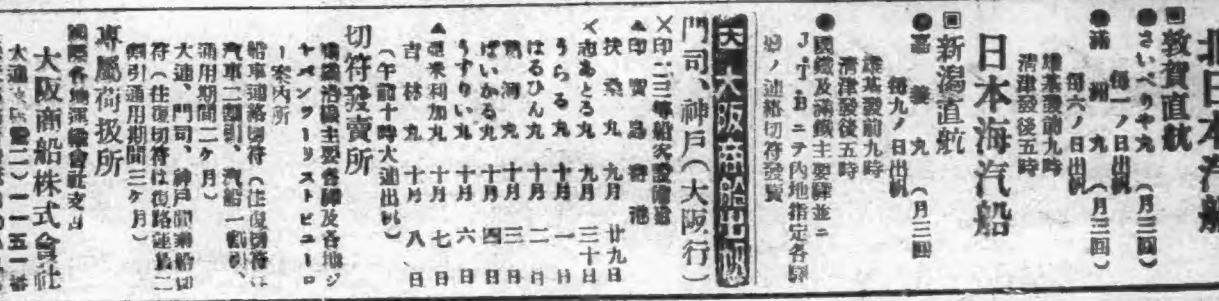 北日本汽船
▣敦賀直航
●さいべりや丸(月三回)
每一ノ日出帆
●滿洲丸(月三回)
每六ノ日出帆
雄基發前九時
淸津發後五時
日本海汽船
▣新潟直航
●嘉義丸(月三回)
每九ノ日出帆
雄基發前九時
淸津發後五時
●國鐵及滿鐵主要驛並ニ
JTBニテ內地指定各驛
ノ連絡切符發賣
大阪商船出帆
門司、神戶(大阪行)
×印二三等船客設備
▲印寄港
扶桑丸 九月廿九日
×志あとる丸 九月三十日
うらる丸 十月一日
はるひん丸 十月二日
熱河丸 十月三日
ばいかる丸 十月四日
うすりい丸 十月六日
▲亞米利加丸 十月七日
吉林丸 十月八日
(午前十時大連出帆)
切符發賣所
滿鐵沿線主要各驛及各地ジ
ヤパンツーリストビユーロ
ー案內所
船車連絡切符(往復切符は
汽車二割引、汽船一割引、
通用期間二ヶ月)
大連、門司、神戶間乘船切
符(往復切符は復路運賃二
割引通用期間三ヶ月)
專屬荷扱所
國際各地運輸會社支店
大阪商船株式會社
大連